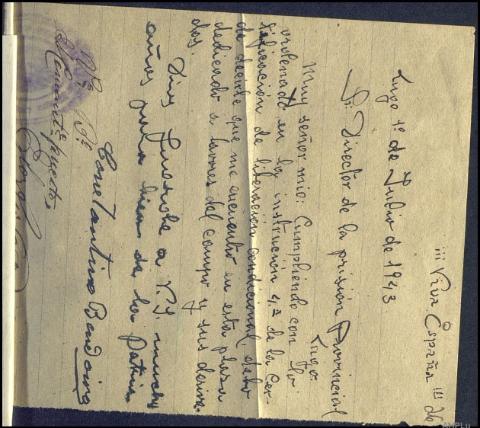 ¡¡¡ Viva España !!!
Lugo 1º de Julio de 1943
Sr. Director de la prisión Provincial
Lugo
Muy señor mio: Cumpliendo con lo
ordenado en la instrucción 4ª de la Cer-
tificación de liberación condicional, debo
de decirle que me encuentro en esta plaza
dedicado a labores del campo y sus deriva-
dos.
Dios guarde a V.S. muchos
años para bien de la Patria
Constantino
Vº Bº
El Comandte